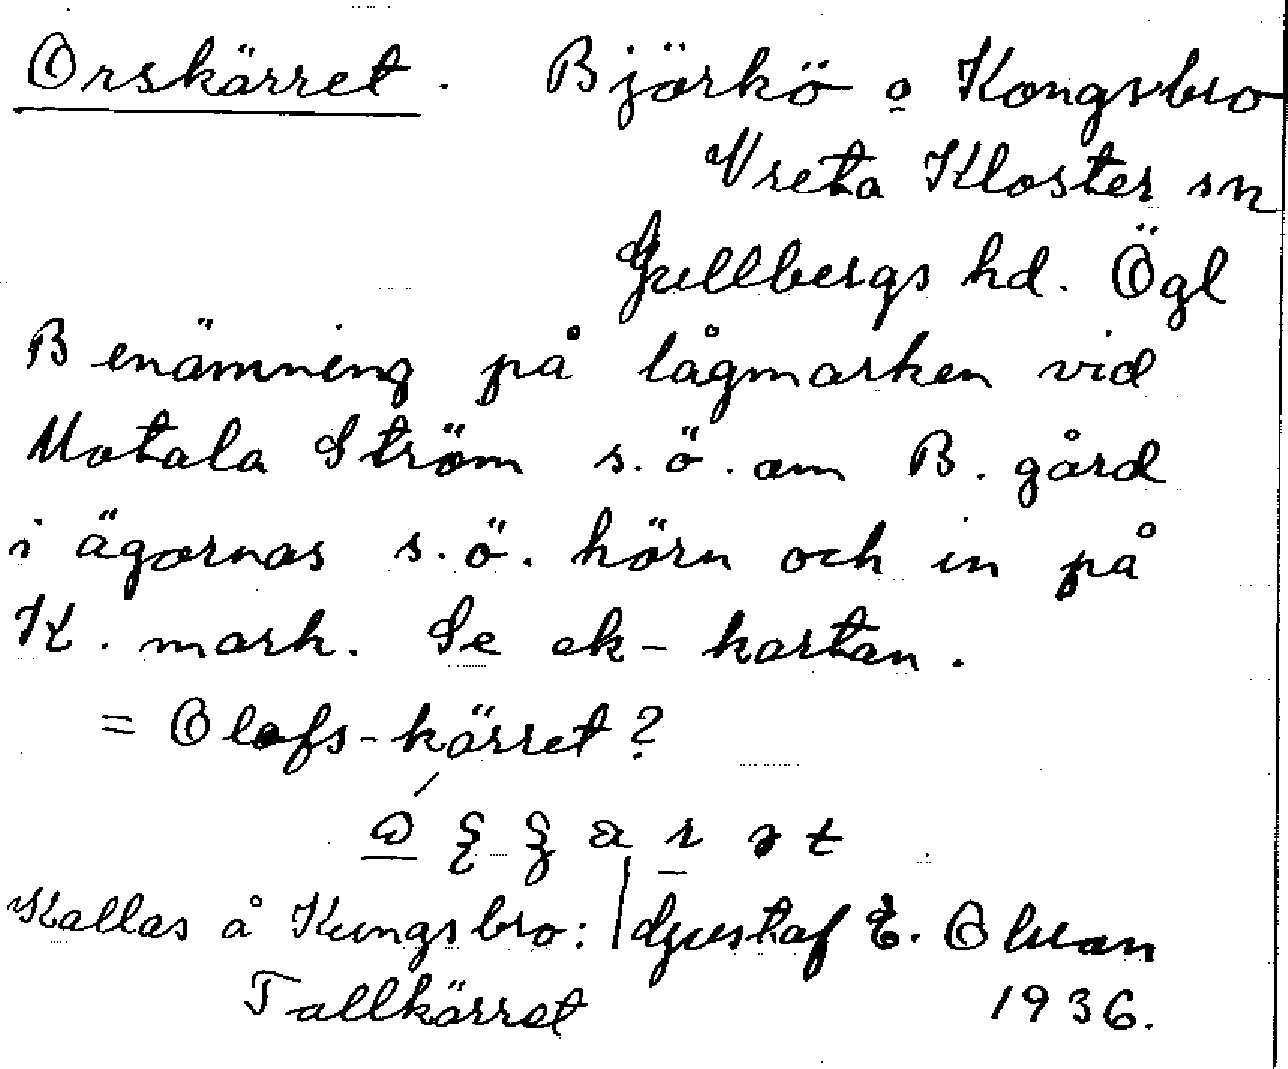 Orskärret. Björkö o Kongsbro
Vreta Kloster sn
Gullbergs hd. Ögl
Benämning på lågmarken vid
Motala Ström s.ö. om B. gård
i ägornas s.ö. hörn och in på
K. mark. Se ek-kartan.
= Olofs-kärret?
Kallas å Kungsbro: Gustaf E. Olson
Tallkärret 1936.